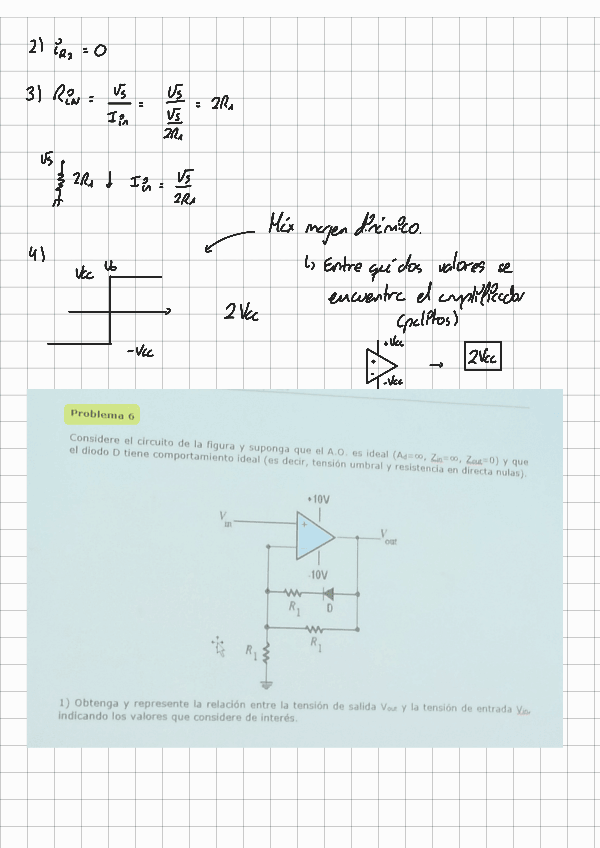 2) iR2 = 0
3) RiN = Vs / Iin = Vs / (Vs / 2R1) = 2R1
Vs
2R1 ↓ Iin = Vs / 2R1
Máx margen dinámico.
4)
↳ Entre qué dos valores se
encuentra el amplificador
(pelPtos)
Vcc Vo
2Vcc
-Vcc
+Vcc
+
-
→ 2Vcc
-Vcc
Problema 6
Considere el circuito de la figura y suponga que el A.O. es ideal (Ad=∞, Zin=∞, Zout=0) y que
el diodo D tiene comportamiento ideal (es decir, tensión umbral y resistencia en directa nulas).
+10V
Vin
+
Vout
-10V
R1 D
R1
R1
1) Obtenga y represente la relación entre la tensión de salida Vout y la tensión de entrada Vin,
indicando los valores que considere de interés.